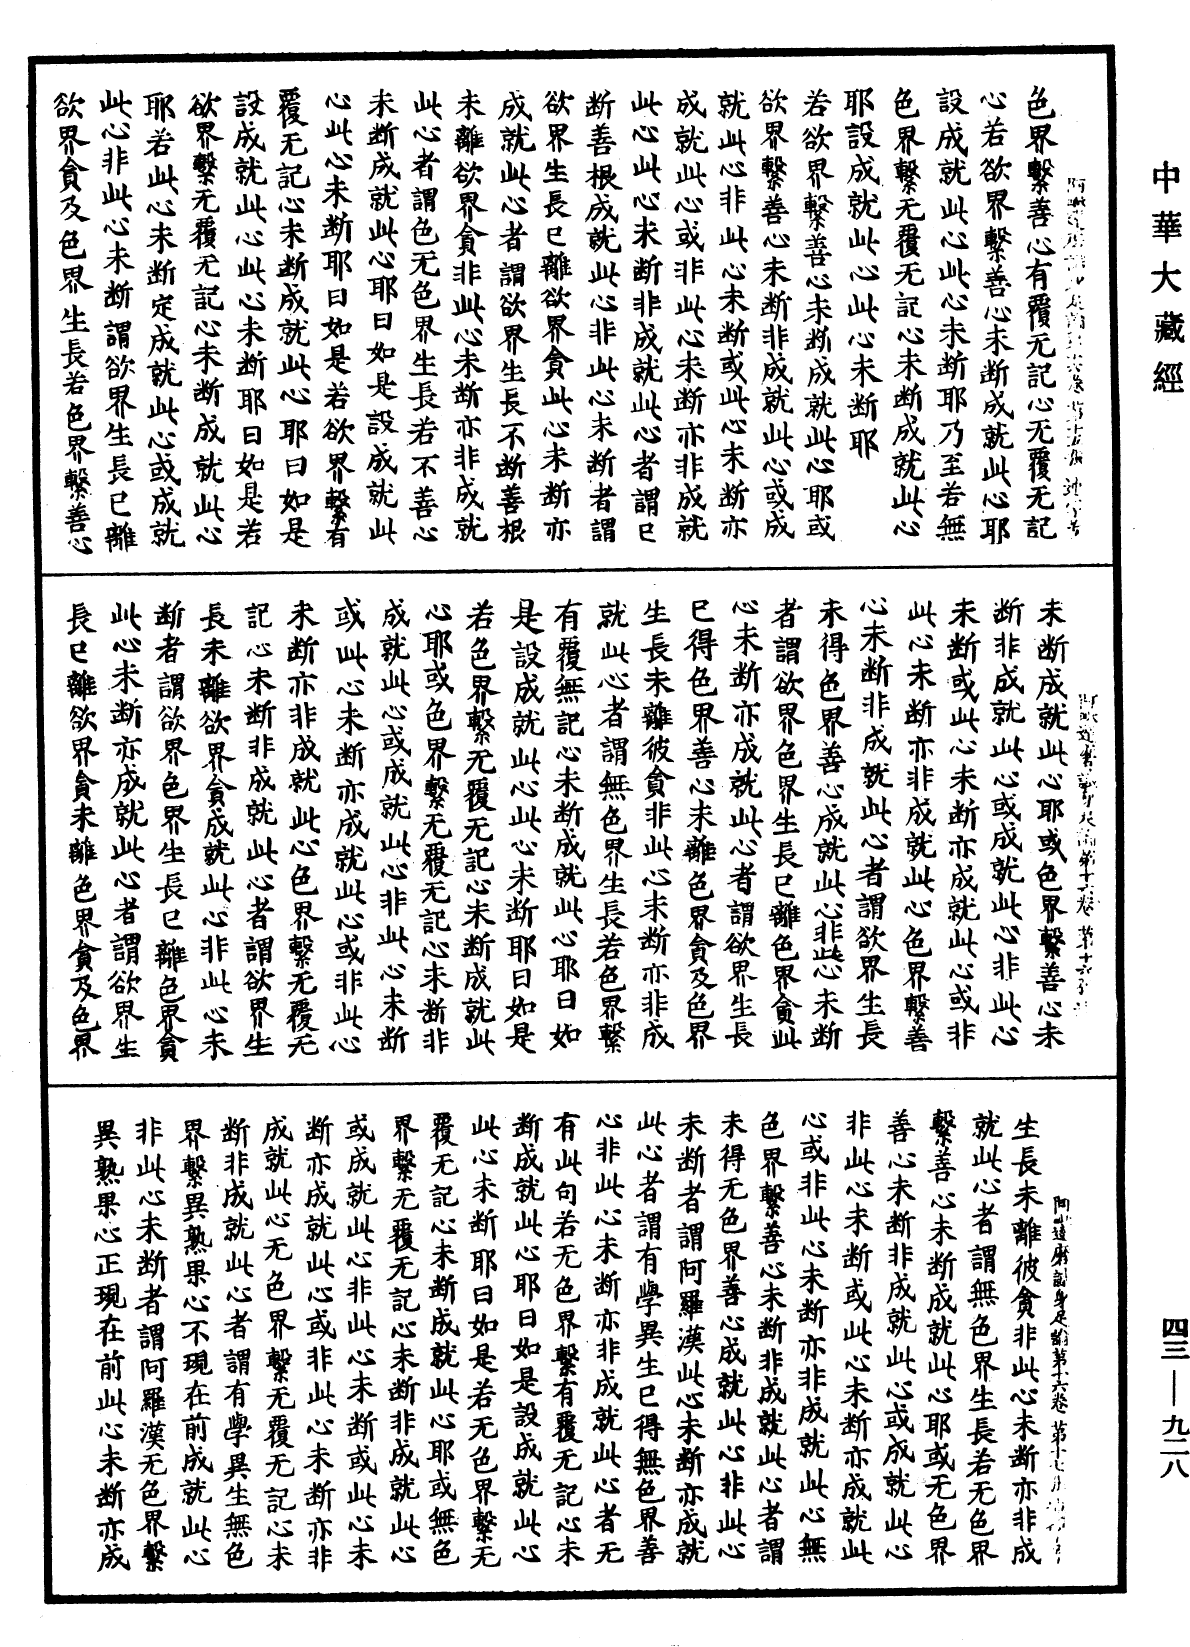 中華大藏經
色界繫善心有覆无記心无覆无記
心若欲界繫善心未断成就此心耶
設成就此心此心未断耶乃至若無
色界繫无覆无記心未断成就此心
耶設成就此心此心未断耶
若欲界繫善心未断成就此心耶或
欲界繫善心未断非成就此心或成
就此心非此心未断或此心未断亦
成就此心或非此心未断亦非成就
此心此心未断非成就此心者謂已
断善根成就此心非此心未断者謂
欲界生長已離欲界貪此心未断亦
成就此心者謂欲界生長不断善根
未離欲界貪非此心未断亦非成就
此心者謂色无色界生長若不善心
未断成就此心耶曰如是設成就此
心此心未断耶曰如是若欲界繫有
覆无記心未断成就此心耶曰如是
設成就此心此心未断耶曰如是若
欲界繫无覆无記心未断成就此心
耶若此心未断定成就此心或成就
此心非此心未断謂欲界生長已離
欲界貪及色界生長若色界繫善心
未断成就此心耶或色界繫善心未
断非成就此心或成就此心非此心
未断或此心未断亦成就此心或非
此心未断亦非成就此心色界繫善
心未断非成就此心者謂欲界生長
未得色界善心成就此心非此心未断
者謂欲界色界生長已離色界貪此
心未断亦成就此心者謂欲界生長
已得色界善心未離色界貪及色界
生長未離彼貪非此心未断亦非成
就此心者謂無色界生長若色界繫
有覆無記心未断成就此心耶曰如
是設成就此心此心未断耶曰如是
若色界繫无覆无記心未断成就此
心耶或色界繫无覆无記心未断非
成就此心或成就此心非此心未断
或此心未断亦成就此心或非此心
未断亦非成就此心色界繫无覆无
記心未断非成就此心者謂欲界生
長未離欲界貪成就此心非此心未
断者謂欲界色界生長已離色界貪
此心未断亦成就此心者謂欲界生
長已離欲界貪未離色界貪及色界
生長未離彼貪非此心未断亦非成
就此心者謂無色界生長若无色界
繫善心未断成就此心耶或无色界
善心未断非成就此心或成就此心
非此心未断或此心未断亦成就此
心或非此心未断亦非成就此心無
色界繫善心未断非成就此心者謂
未得无色界善心成就此心非此心
未断者謂阿羅漢此心未断亦成就
此心者謂有學異生已得無色界善
心非此心未断亦非成就此心者无
有此句若无色界繫有覆无記心未
断成就此心耶曰如是設成就此心
此心未断耶曰如是若无色界繫无
覆无記心未断成就此心耶或無色
界繫无覆无記心未断非成就此心
或成就此心非此心未断或此心未
断亦成就此心或非此心未断亦非
成就此心无色界繫无覆无記心未
断非成就此心者謂有學異生無色
界繫異熟果心不現在前成就此心
非此心未断者謂阿羅漢无色界繫
異熟果心正現在前此心未断亦成
四三—九二八